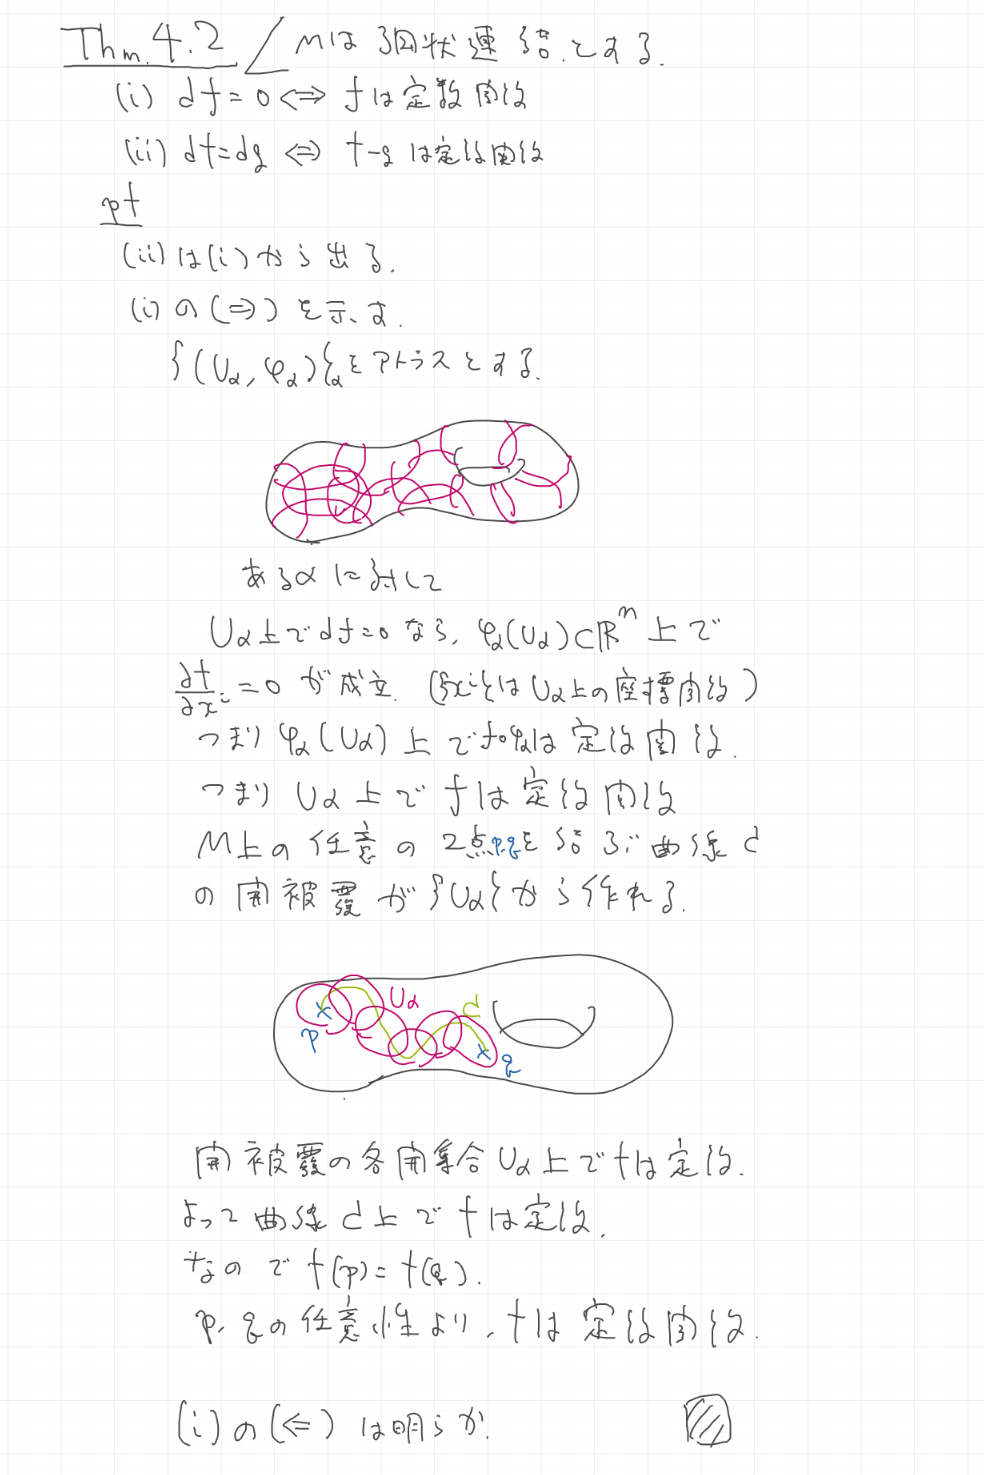 Thm.4.2 / Mは弧状連結.とする.
(i) df=0 ⇔ fは定数関数
(ii) df=dg ⇔ f-g は定数関数
pf
(ii)は(i)から出る.
(i)の(⇒)を示す.
{(Uα, φα)}αをアトラスとする.
あるαに対して
Uα上でdf=0なら, φα(Uα)⊂ℝⁿ上で
∂f/∂xⁱ=0 が成立. ({xⁱ}はUα上の座標関数)
つまり φα(Uα)上で f∘φαは 定数関数.
つまり Uα上で fは定数関数
M上の任意の2点p,qを結ぶ曲線C
の開被覆が{Uα}から作れる.
Uα
C
p
q
開被覆の各開集合Uα上でfは定数.
よって曲線C上でfは定数.
なので f(p)=f(q).
p, qの任意性より, fは定数関数.
(i)の(⇐)は明らか.